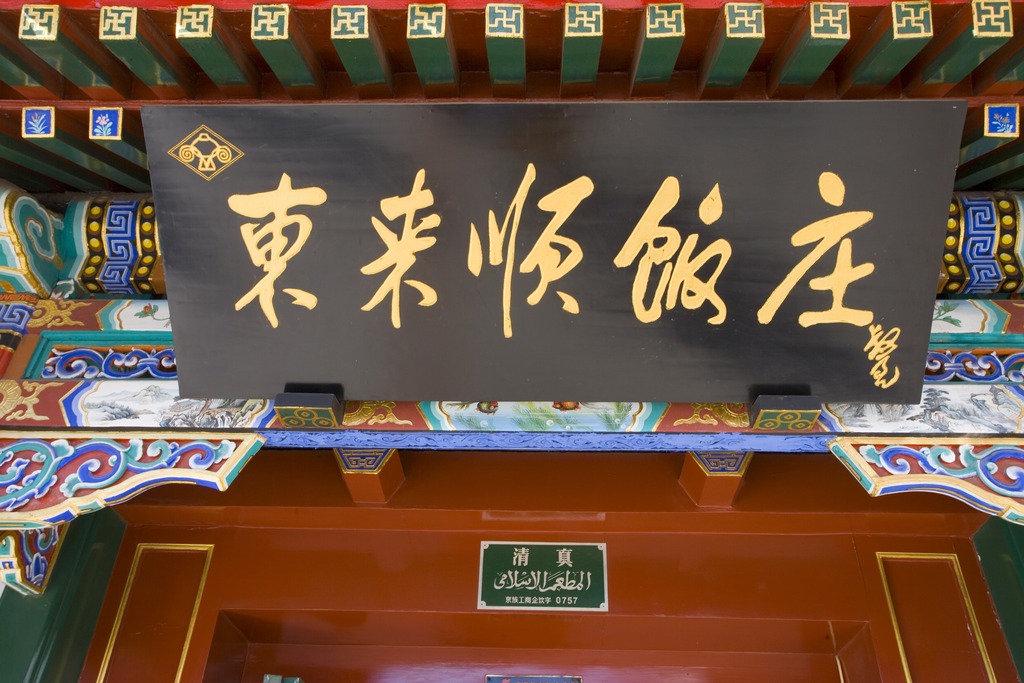 東来順飯庄
清真
المطعم الاسلامي
京族工商企饮字 0757